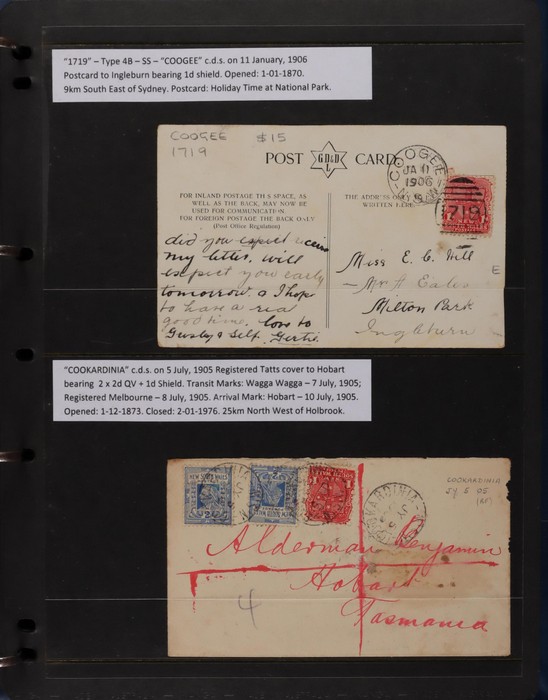 "1719" – Type 4B – SS – "COOGEE" c.d.s. on 11 January, 1906
Postcard to Ingleburn bearing 1d shield. Opened: 1-01-1870.
9km South East of Sydney. Postcard: Holiday Time at National Park.
COOGEE $15
1719
POST GD&D L CARD
COOGEE
JA 11
1906
N.S.W
1719
FOR INLAND POSTAGE THIS SPACE, AS
WELL AS THE BACK, MAY NOW BE
USED FOR COMMUNICATION.
FOR FOREIGN POSTAGE THE BACK ONLY
(Post Office Regulation)
THE ADDRESS ONLY
WRITTEN HERE
did you expect
my letter. will
expect you early
tomorrow. & I hope
to have a real
good time. love to
Gusty & Self. Gertie.
Miss E. C. Hill
Mr H Eales
Milton Park
Ingleburn
E
"COOKARDINIA" c.d.s. on 5 July, 1905 Registered Tatts cover to Hobart
bearing 2 x 2d QV + 1d Shield. Transit Marks: Wagga Wagga – 7 July, 1905;
Registered Melbourne – 8 July, 1905. Arrival Mark: Hobart – 10 July, 1905.
Opened: 1-12-1873. Closed: 2-01-1976. 25km North West of Holbrook.
NEW SOUTH WALES
COOKARDINIA
COOKARDINIA
JY 5 05
Alderman Benjamin
Hobart
Tasmania
4